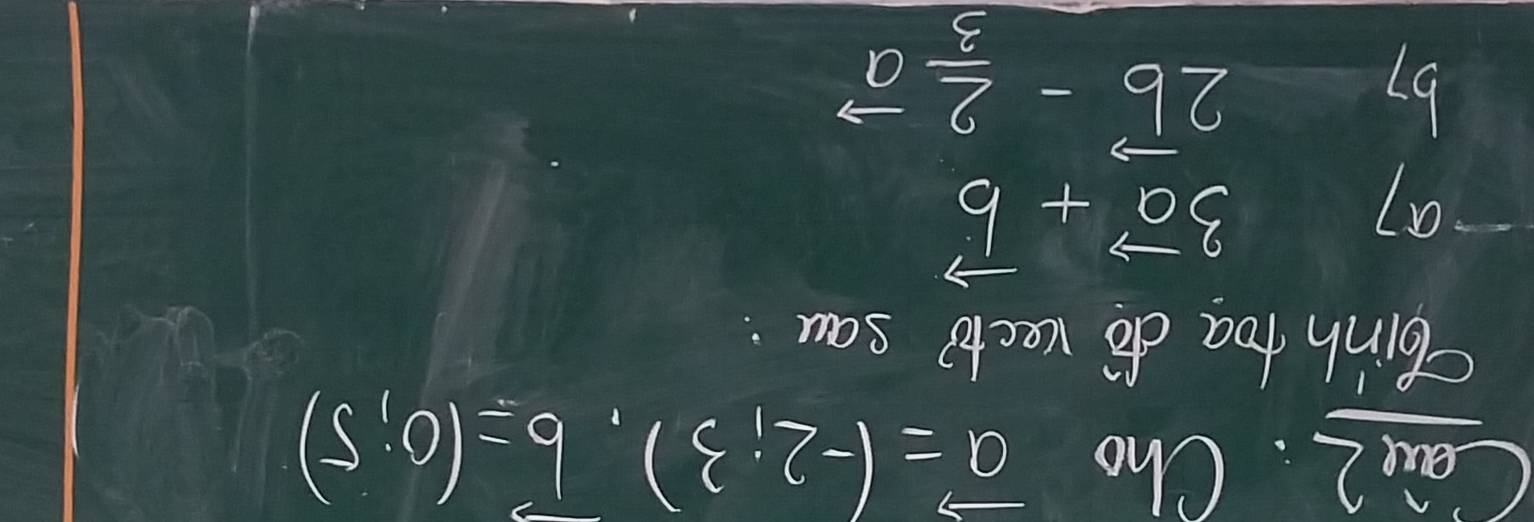 Câu 2: Cho $\overrightarrow{a} = (-2; 3)$, $\overrightarrow{b} = (0; 5)$
Tính toạ độ vectơ sau:
a) $3\overrightarrow{a} + \overrightarrow{b}$
b) $2\overrightarrow{b} - \frac{2}{3}\overrightarrow{a}$